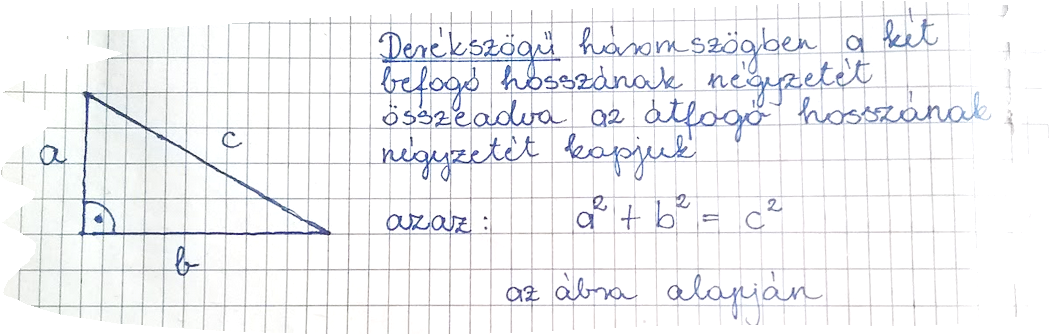 Derékszögű háromszögben a két
befogó hosszának négyzetét
összeadva az átfogó hosszának
négyzetét kapjuk
a
c
azaz: a² + b² = c²
b
az ábra alapján